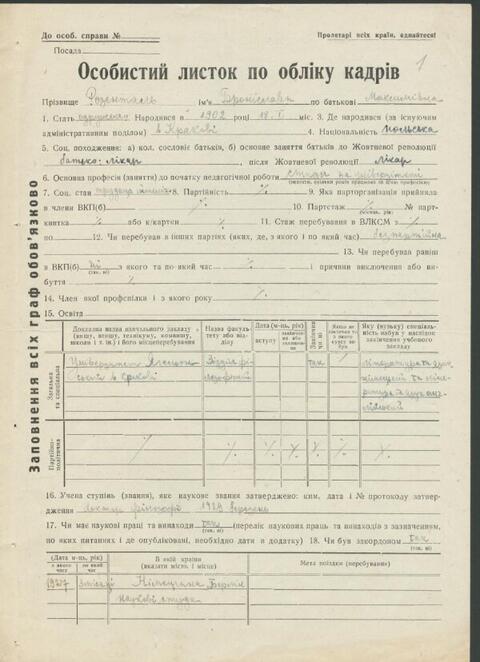 До особ. справи №
Пролетарі всіх країн, єднайтеся!
Посада
1
Особистий листок по обліку кадрів
Прізвище Розенталь ім'я Броніслава по батькові Максимівна
1. Стать 2. Народився в 1902 році 18. II міс. 3. Де народився (за існуючим
адміністративним поділом) в Кракові 4. Національність польська
5. Соц. походження: а) кол. сословіє батьків, б) основне заняття батьків до Жовтневої революції
батько: лікар, після Жовтневої революції лікар
6. Основна професія (заняття) до початку педагогічної роботи студії на університеті
7. Соц. стан 8. Партійність 9. Яка парторганізація прийняла
в члени ВКП(б) 10. Партстаж № парт-
квитка або к/картки 11. Стаж перебування в ВЛКСМ з
по 12. Чи перебував в інших партіях (яких, де, з якого і по який час) безпартійна
13. Чи перебував раніш
в ВКП(б) ні з якого та по який час і причини виключення або ви-
буття
14. Член якої профспілки і з якого року
15. Освіта
Заповнення всіх граф обов'язково
Докладна назва навчального закладу (вищу, внешу, технікуму, комвишу, школи і т. ін.) і його місцеперебування
Назва факуль-тету або від-ділу
Дата (м-ць, рік)
вступу
Закінчив чи ні
Яку (вузьку) спеціаль-ність набув у наслідок закінчення учбового закладу
Загальна та спеціальна
Університет Ягеллон-
ський в Кракові
Відділ фі-
лозофічний
так
література та
німецькій та
Партійно-політична
16. Учена ступінь (звання), яке наукове звання затверджено: ким, дата і № протоколу затвер-
дження доктор філософії 1929 вересень
17. Чи має наукові праці та винаходи так (перелік наукових праць та винаходів з зазначенням,
по яких питаннях і де опубліковані, необхідно дати в додатку) 18. Чи був закордоном так
(Дата м-ць, рік)
з якого часу
по який час
В якій країні (вказати місто, і місце)
Мета поїздки (перебування)
1927
Німеччина Берлін
наукові студії